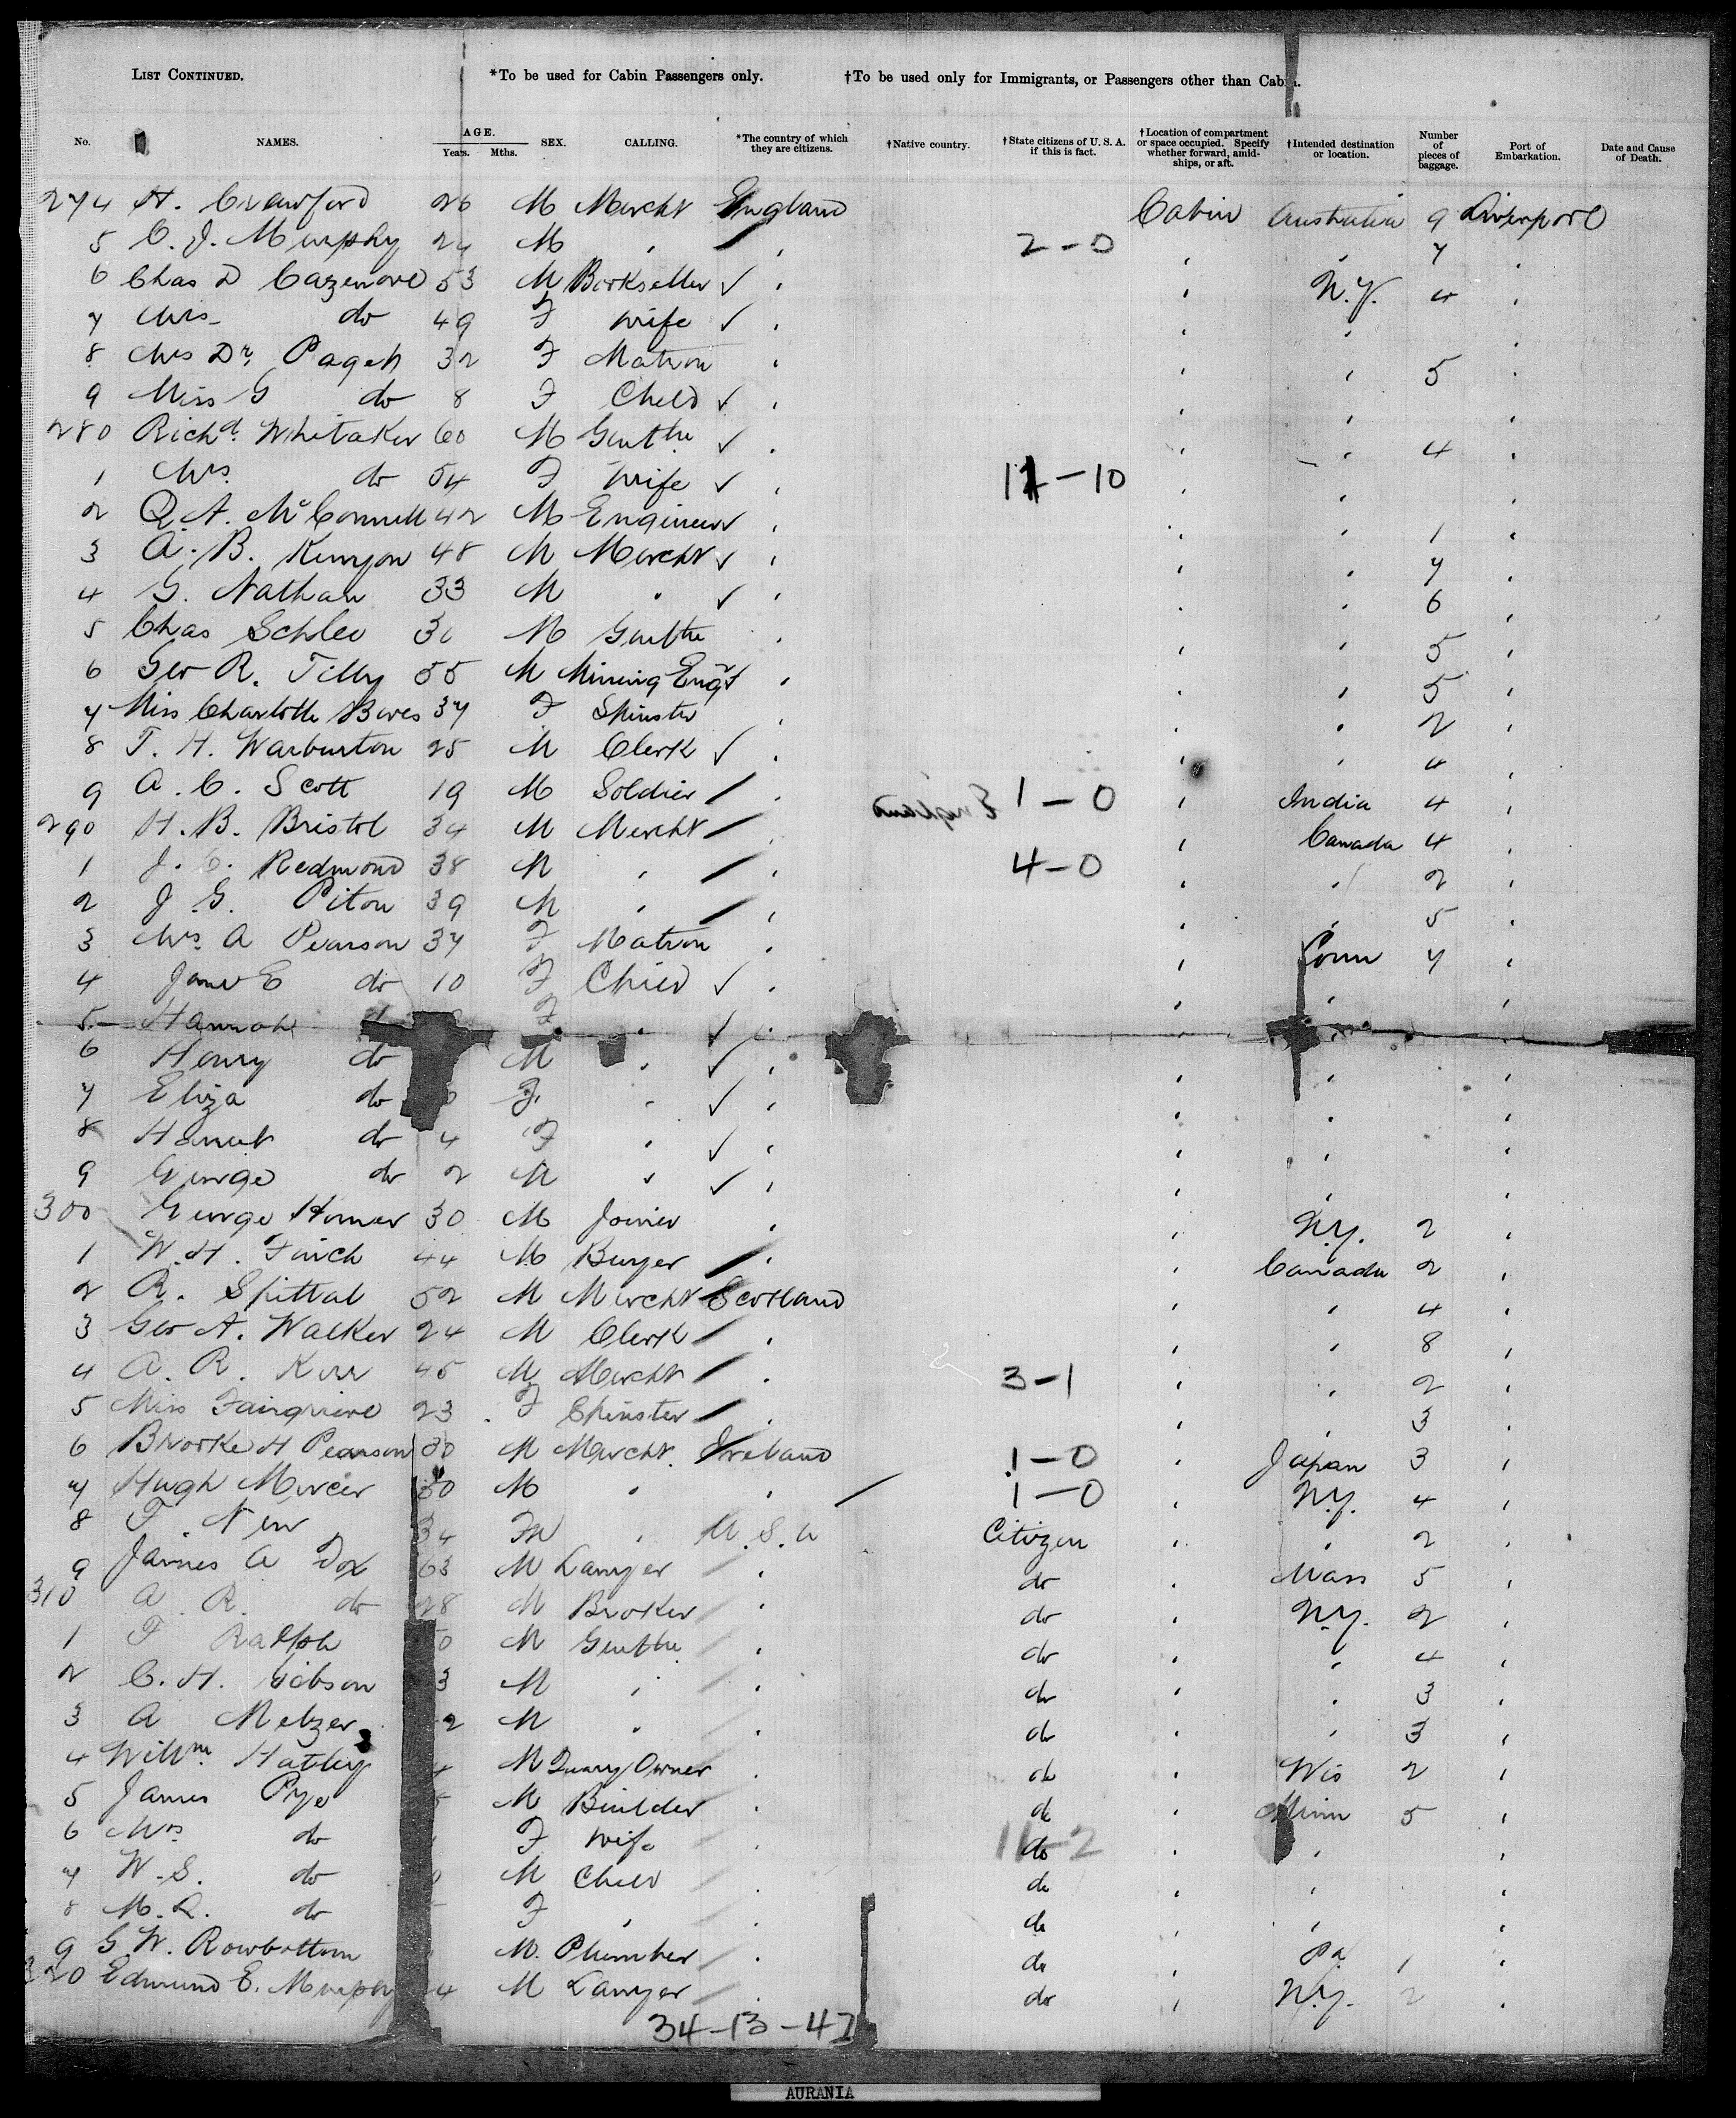 LIST CONTINUED. *To be used for Cabin Passengers only. †To be used only for Immigrants, or Passengers other than Cabin.
No. NAMES. AGE. Years. Mths. SEX. CALLING. *The country of which they are citizens. †Native country. †State citizens of U. S. A. if this is fact. †Location of compartment or space occupied. Specify whether forward, amidships, or aft. †Intended destination or location. Number of pieces of baggage. Port of Embarkation. Date and Cause of Death.
274 H. Crawford 26 M Mercht England Cabin Australia 9 Liverpool
5 C. J. Murphy 24 M " / " 2-0 " " 7 "
6 Chas D Cazenove 53 M Bookseller ✓ " " N.Y. 4 "
7 Mrs do 49 F Wife ✓ " " " "
8 Mrs Dr. 32 F Matron " " " 5 "
9 Miss G do 8 F Child ✓ " " " "
280 Richd. Whitaker 60 M Gentln ✓ " " " 4 "
1 Mrs. do 54 F Wife ✓ " 11-10 " " "
2 Q. A. McConnell 42 M Engineer ✓ " " " 1 "
3 A. B. Kenyon 48 M Mercht ✓ " " " 7 "
4 G. Nathan 33 M " ✓ " " " 6 "
5 Chas Schleo M Gentln " " " 5 "
6 Geo R. Tilly 55 M Mining Engr " " " 5 "
7 Miss Charlotte 37 F Spinster " " " 2 "
8 T. H. Warburton 25 M Clerk ✓ " " " 4 "
9 A. C. Scott 19 M Soldier / " 1-0 " India 4 "
290 H. B. Bristol 34 M Mercht / " " Canada 4 "
1 J. C. Redmond 38 M " / " 4-0 " " 2 "
2 J. G. Piton 39 M " / " " " 5 "
3 Mrs. A Pearson 37 F Matron " " Conn 7 "
4 Jane E do 10 F Child ✓ " " " "
5 Hannah F " ✓ "
6 Henry do M " ✓ " " " "
7 Eliza do F " ✓ " " " "
8 do 4 F " ✓ " " " "
9 George do 2 M " ✓ " " " "
300 George Homer 30 M Joiner " " N.Y. 2 "
1 W. H. Finch 44 M Buyer / " " Canada 2 "
2 R. Spittal 52 M Mercht Scotland " " 4 "
3 Geo A. Walker 24 M Clerk / " " " 8 "
4 A. R. Kerr 45 M Mercht / " 3-1 " " 2 "
5 Miss Fairgrieve 23 F Spinster / " " " 3 "
6 Brooke H Pearson 30 M Mercht. Ireland 1-0 " Japan 3 "
7 Hugh Mercer 30 M " " / 1-0 " N.Y. 4 "
8 F. New 34 M " U.S.A Citizen " " 2 "
9 James A Dox 63 M Lawyer " do " Mass 5 "
310 A. R. do 28 M Broker / " do " N.Y. 2 "
1 F Ralph 0 M Gentln / " do " " 4 "
2 C. H. Gibson 3 M " / " do " " 3 "
3 A Metzer 2 M " / " do " " 3 "
4 Willm. Hatley 4 M Quarry Owner " do " Wis 2 "
5 James Pye 5 M Builder " do " Minn 5 "
6 Mrs do F Wife " 11-2 do " " "
7 W. S. do M Child / " do " " "
8 M. R. do F " / " do " " "
9 G. W. Rowbottom M. Plumber / " do " Pa. 1 "
320 Edmund E. Murphy 4 M Lawyer / " do " N.Y. 2 "
34-13-47
AURANIA